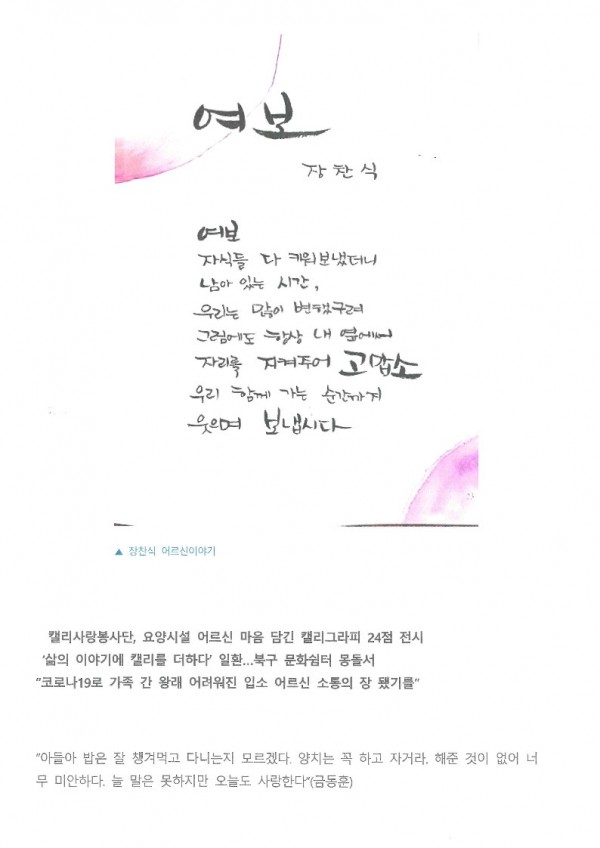 여보
장찬식
여보
자식들 다 키워보냈더니
남아 있는 시간,
우리는 많이 변했구려
그럼에도 항상 내 옆에서
자리를 지켜주어 고맙소
우리 함께 가는 순간까지
웃으며 보냅시다
▲ 장찬식 어르신이야기
캘리사랑봉사단, 요양시설 어르신 마음 담긴 캘리그라피 24점 전시
‘삶의 이야기에 캘리를 더하다’ 일환...북구 문화쉼터 몽돌서
"코로나19로 가족 간 왕래 어려워진 입소 어르신 소통의 장 됐기를"
"아들아 밥은 잘 챙겨먹고 다니는지 모르겠다. 양치는 꼭 하고 자거라. 해준 것이 없어 너
무 미안하다. 늘 말은 못하지만 오늘도 사랑한다"(금동훈)